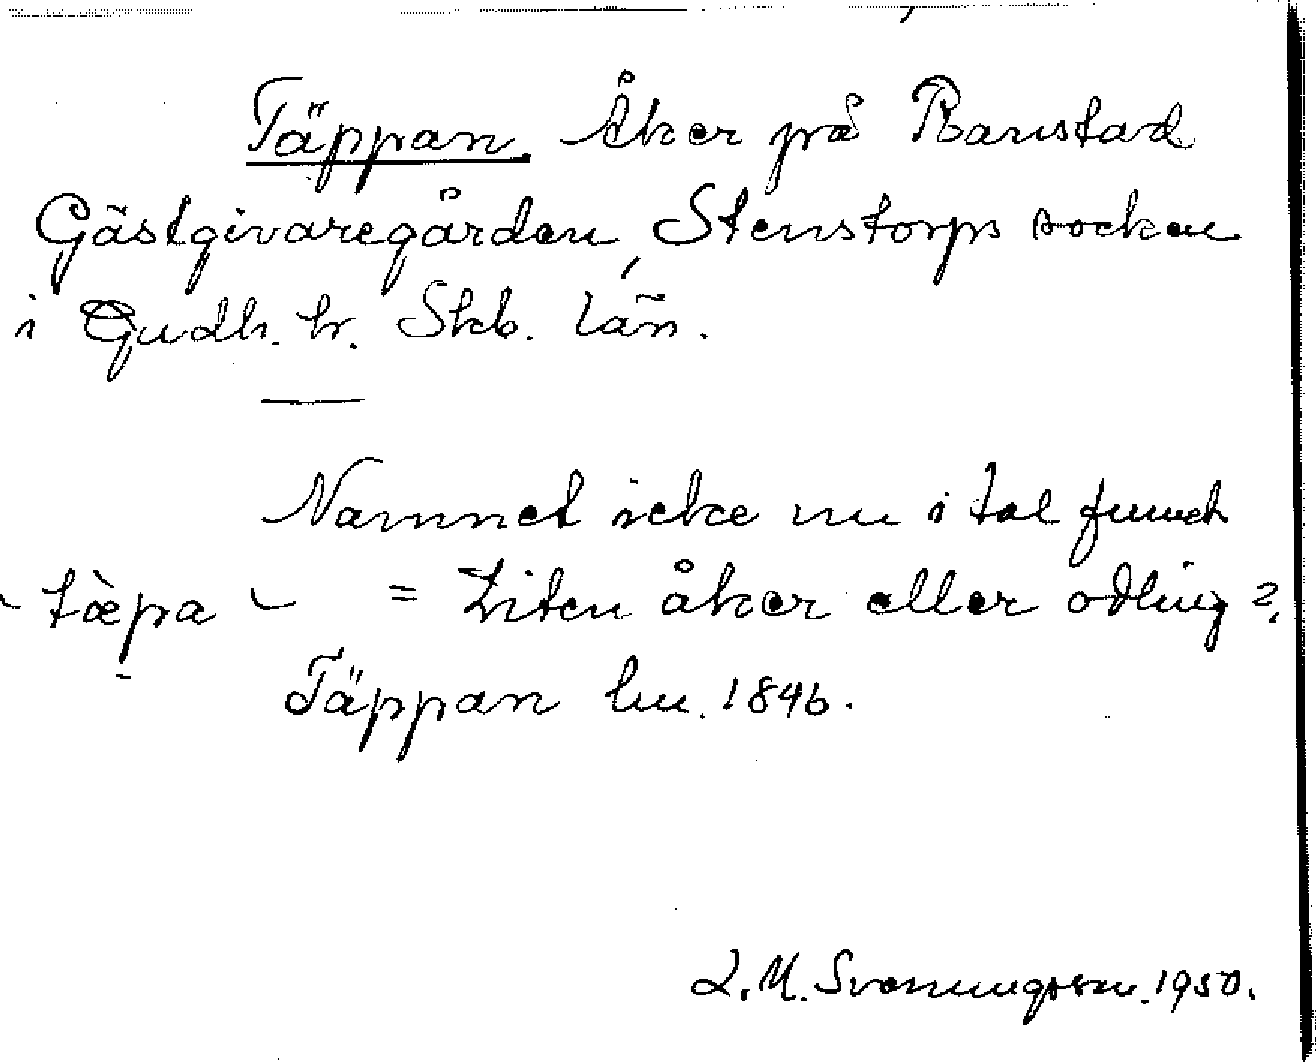 Täppan. Åker på Ranstad
Gästgivaregården, Stenstorps socken
i Gudh. hr. Skb. län.
Namnet icke nu i tal funnet
- tæ̀pa - = Liten åker eller odling?
Täppan hu. 1846.
L. M. Svenungsson. 1950.